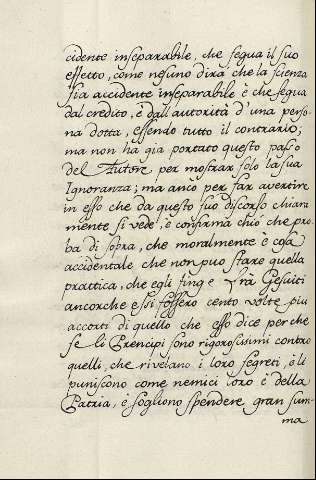 cidente inseparabile, che segua il suo
effetto, come nesuno dirà che la scienza
sia accidente inseparabile è che segua
dal credito, è dall'autorità d'una perso-
na dotta, essendo tutto il contrario;
ma non hà già portato questo passo
del Autore per mostrar solo la sua
Ignoranza; ma anco per far avertire
in esso che da questo suo discorso chiara
mente si vede, è confirma chiò che pro-
ba di sopra, che moralmente è cosa
accidentale che non può stare quella
prattica, che egli finge frà Gesuiti
ancorche essi fossero cento volte piu
accorti di quello che esso dice perche
se li Prencipi sono rigorosissimi contro
quelli, che rivelano i loro segreti, è li
puniscono come nemici loro è della
Patria, è sogliono spendere gran sum-
ma